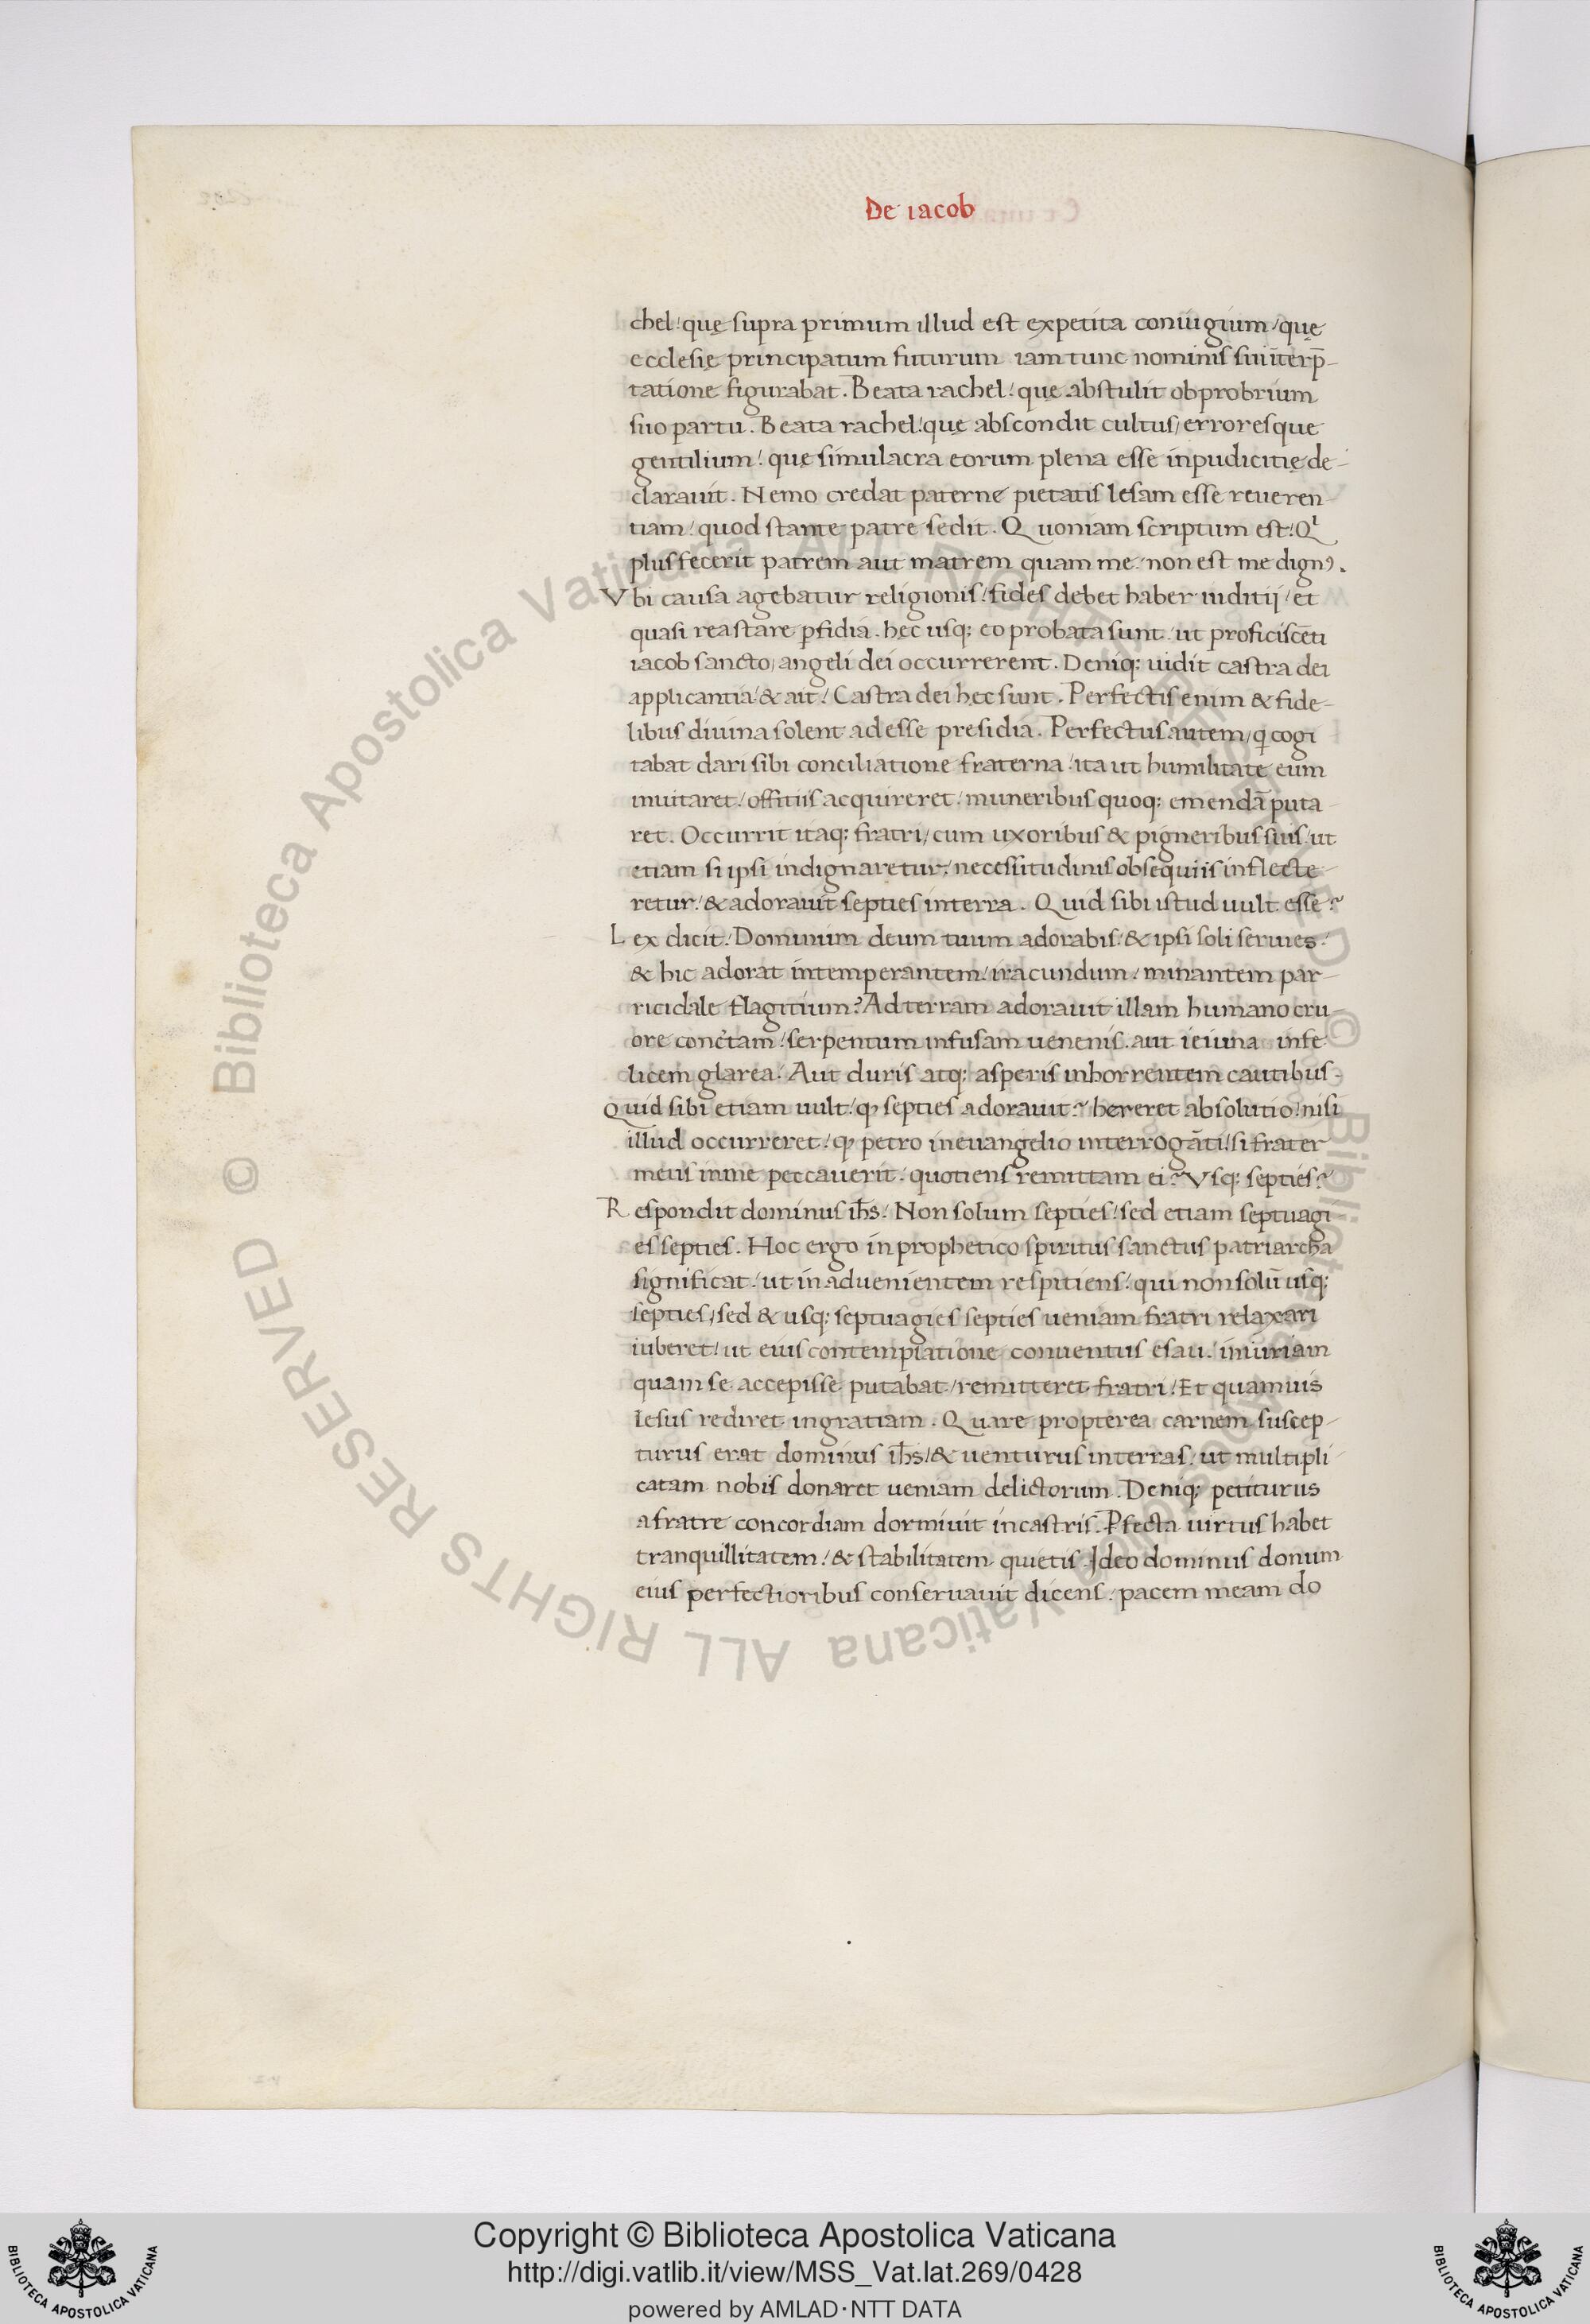 De iacob
chel! quę supra primum illud est expetita coniugium / quę
ecclesię principatum futurum iam tunc nominis sui īterp̄-
tatione figurabat. Beata rachel! que abstulit obprobrium
suo partu. Beata rachel! quę abscondit cultus, erroresque
gentilium! quę simulacra eorum plena esse inpudicitię de-
clarauit. Nemo credat paterne pietatis lesam esse reueren-
tiam! quod stante patre sedit. Quoniam scriptum est! Qⁱ
plus fecerit patrem aut matrem quam me / non est me dignꝰ.
Vbi causa agebatur religionis! fides debet haber iuditij / et
quasi rea stare ꝑfidia. hęc usq; eo probata sunt / ut proficiscēti
iacob sancto, angeli dei occurrerent. Deniq; uidit castra dei
applicantia! & ait! Castra dei hęc sunt. Perfectis enim & fide-
libus diuina solent adesse presidia. Perfectus autem, q̣ cogi
tabat dari sibi conciliatione fraterna / ita ut humilitate eum
inuitaret! offitiis acquireret! muneribus quoq; emendā puta-
ret. Occurrit itaq; fratri, cum uxoribus & pigneribus suis / ut
etiam si ipsi indignaretur! necessitudinis obsequiis inflecte-
retur! & adorauit septies interra. Quid sibi istud uult esse?
Lex dicit! Dominum deum tuum adorabis! & ipsi soli seruies!
& hic adorat intemperantem! iracundum! minantem par-
ricidale flagitium? Ad terram adorauit illam humano cru-
ore concretam! serpentum infusam uenenis. aut ieiuna infe
licem glarea. Aut duris atq; asperis inhorrentem cautibus.
Quid sibi etiam uult! ꝙ septies adorauit? hereret absolutio! nisi
illud occurreret! ꝙ petro ineuangelio interrogāti! si frater
meus inme peccauerit! quotiens remittam ei? Vsq; septies?
Respondit dominus ihs̄! Non solum septies! sed etiam septuagi
es septies. Hoc ergo in prophetico spiritus sanctus patriarcha
significat! ut in aduenientem respitiens! qui non solū usq;
septies, sed & usq; septuagies septies ueniam fratri relaxari
iuberet! ut eius contemplatione conuentus esau! iniuriam
quam se accepisse putabat / remitteret fratri! Et quamuis
lesus rediret ingratiam. Quare propterea carnem suscep-
turus erat dominus ihs̄! & uenturus interras! ut multipli-
catam nobis donaret ueniam delictorum. Deniq; petiturus
afratre concordiam dormiuit incastris. Ꝑfecta uirtus habet
tranquillitatem! & stabilitatem quietis. Ideo dominus donum
eius perfectioribus conseruauit dicens! pacem meam do
© Biblioteca Apostolica Vaticana ALL RIGHTS RESERVED © Biblioteca Apostolica Vaticana ALL RIGHTS RESERVED
Copyright © Biblioteca Apostolica Vaticana
http://digi.vatlib.it/view/MSS_Vat.lat.269/0428
powered by AMLAD·NTT DATA
BIBLIOTECA APOSTOLICA VATICANA
BIBLIOTECA APOSTOLICA VATICANA